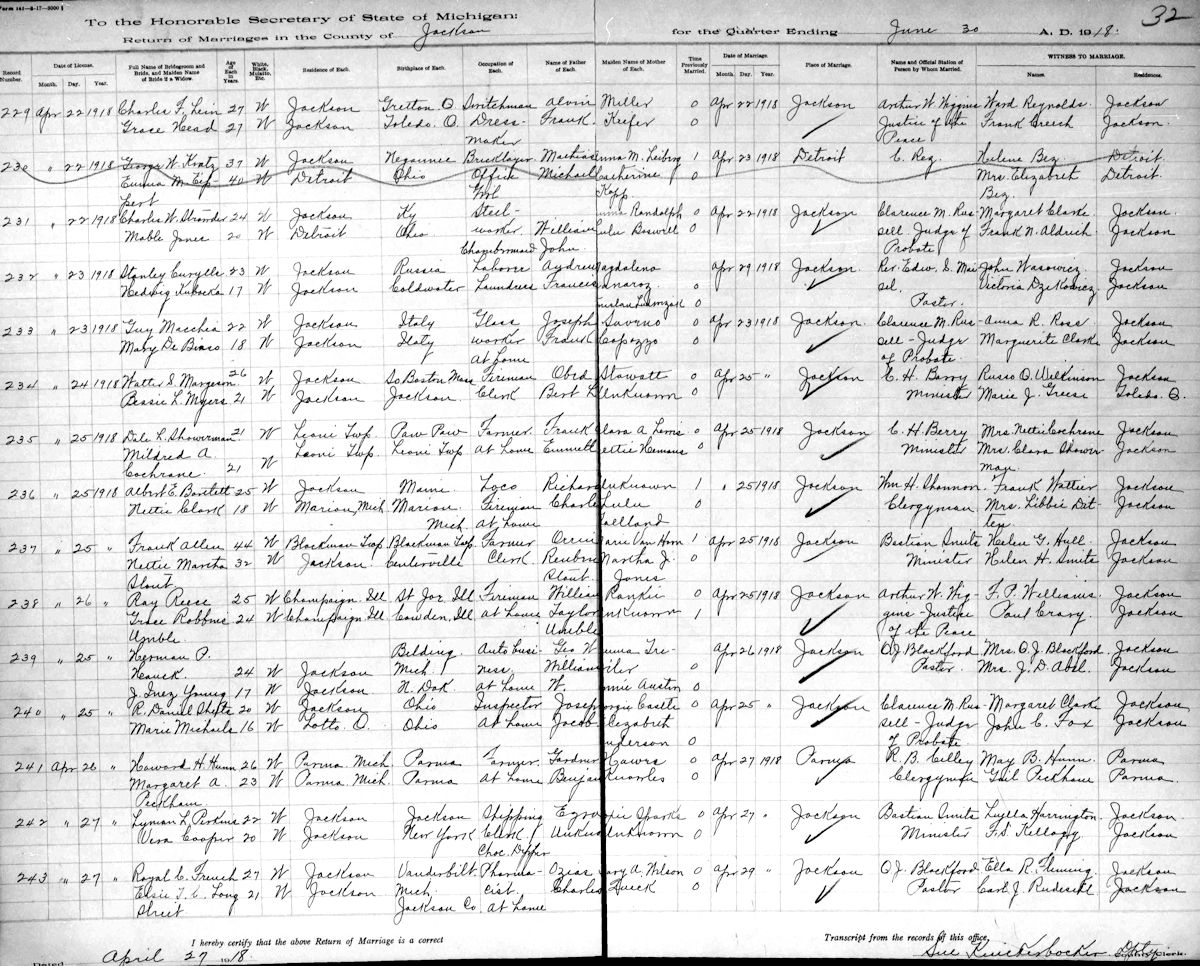 Form 141-8-17-3000
32
To the Honorable Secretary of State of Michigan:
Return of Marriages in the County of Jackson for the Quarter Ending June 30 A. D. 1918.
Record Number. Date of License. Month. Day. Year. Full Name of Bridegroom and Bride, and Maiden Name of Bride if a Widow. Age of Each in Years. White, Black, Mulatto, Etc. Residence of Each. Birthplace of Each. Occupation of Each. Name of Father of Each. Maiden Name of Mother of Each. Time Previously Married. Date of Marriage. Month. Day. Year. Place of Marriage. Name and Official Station of Person by Whom Married. WITNESS TO MARRIAGE. Names. Residences.
229 Apr 22 1918 Charles F. Lein 27 W Jackson Gretton. O Switchman Alvin Miller 0 Apr 22 1918 Jackson Arthur W. Wiggins Ward Reynolds. Jackson
Grace Head 27 W Jackson Toledo. O. Dress- Frank Keefer 0 Justice of the Frank Creech Jackson.
maker Peace
230 " 22 1918 George W. Kratz 37 W Jackson Negaunee Bricklayer Mathias Anna M. Leiberg 1 Apr 23 1918 Detroit C. Rez. Helene Bez. Detroit.
Emma M. Tip- 40 W Detroit Ohio Office Michael Catherine 0 Mrs. Elizabeth Detroit.
pert Kopp Bez.
231 " 22 1918 Charles W. Stronder 24 W Jackson Ky Steel- Randolph 0 Apr 22 1918 Jackson Clarence M. Rus- Margaret Clarke Jackson
Mable Jones 20 W Detroit Ohio worker William Lulu Boswell 0 sell. Judge of Frank N. Aldrich Jackson
Chambermaid John Probate
232 " 23 1918 Stanley Curylle 23 W Jackson Russia Laborer Andrew Magdalena 0 Apr 29 1918 Jackson Rev. Edw. S. Mai John Wasowicz. Jackson
Hedwig Kuboska 17 W Jackson Coldwater Laundress Frances 0 sel. Victoria Dzikowicz Jackson
Pastor.
233 " 23 1918 Guy Macchia 22 W Jackson Italy Glass Joseph Saverno 0 Apr 23 1918 Jackson Clarence M. Rus- Anna R. Rose Jackson
Mary De Biaso 18 W Jackson Italy worker Frank Capozzo 0 sell - Judge Marguerite Clarke Jackson
At home of Probate
234 " 24 1918 Walter S. Margeson 26 W Jackson So Boston Mass Fireman Obed Stowatt 0 Apr 25 " Jackson C. H. Berry Russo O. Wilkinson Jackson
Bessie L. Myers 21 W Jackson Jackson Clerk Bert L. Unknown 0 Minister Marie J. Greese Toledo O.
235 " 25 1918 Dale L. Showerman 21 W Leoni Twp. Paw Paw Farmer Frank Clara A. Lewis 0 Apr 25 1918 Jackson C. H. Berry Mrs. Nettie Cochrane Jackson
Mildred A. Leoni Twp. Leoni Twp At home Emmett Nettie Hemans 0 Minister Mrs. Clara Shower Jackson
Cochrane. 21 W man.
236 " 25 1918 Albert E. Bartlett 25 W Jackson Maine Loco Richard Unknown 1 " 25 1918 Jackson Wm H. Shannon Frank Vattier Jackson
Nettie Clark 18 W Marion, Mich Marion Fireman Charles Lulu 0 Clergyman Mrs. Libbie Dit- Jackson
Mich At home Tolland ten
237 " 25 " Frank Allen 44 W Blackman Twp. Blackman Twp. Farmer Orrin Marie Van Horn 1 Apr 25 1918 Jackson Bastian Smits Helen G. Hull. Jackson
Nettie Martha 32 W Jackson. Centerville Clerk Reuben Martha J. 0 Minister Helen H. Smits Jackson
Stout Stout Jones
238 " 26 " Ray Reese 25 W Champaign. Ill St Joe, Ill Fireman William Rankie 0 Apr 25 1918 Jackson Arthur W. Wig- F. P. Williams. Jackson
Grace Robbins 24 W Champaign Ill Cowden, Ill at home Taylor Unknown 1 gins - Justice Paul Crary Jackson
Umble. Umble of the Peace
239 " 25 " Herman P. Belding. Auto busi- Geo W. Emma Tre- Apr 26 1918 Jackson O J. Blackford Mrs. O. J. Blackford. Jackson
24 W Jackson Mich ness. William Pastor Mrs. J. D. Abel. Jackson
J. Inez Young 17 W Jackson N. Dak. at home W. Minnie Austin 0
240 " 25 " R. Daniel Sheetz 20 W Jackson Ohio Inspector Joseph Castle 0 Apr 25 " Jackson Clarence M. Rus- Margaret Clarke Jackson
Marie Michaels 16 W Lotto. O. Ohio At home Jacob Elizabeth sell - Judge John C. Fox Jackson
Anderson 0 of Probate.
241 Apr 26 " Howard H. Hunn 26 W Parma Mich Parma Farmer Gardner Hawes 0 Apr 27 1918 Parma R. B. Cilley May B. Hunn. Parma
Margaret A. 23 W Parma Mich. Parma at home Benjan Knowles 0 Clergyman Gail Peckham Parma.
Peckham
242 " 27 " Lyman L. Perkins 22 W Jackson Jackson Shipping Ezra Sparks 0 Apr 27 " Jackson Bastian Smits Luylla Harrington. Jackson
Vera Cooper 20 W Jackson New York Clerk Unknown 0 Minister F. S. Kellogg Jackson
Choc. Dipper
243 " 27 " Royal C. French 27 W Jackson Vanderbilt. Pharma- Ozias Mary A. Wilson 0 Apr 29 " Jackson O J. Blackford Ella R. Fleming. Jackson
Elsie T. C. Long 21 W Jackson Mich. cist. Charles Quick 0 Pastor Carl J. Rudesill Jackson
Street Jackson Co at home
I hereby certify that the above Return of Marriage is a correct Transcript from the records of this office.
Dated April 27 1918. Sue Knickerbocker. Dpty County Clerk.